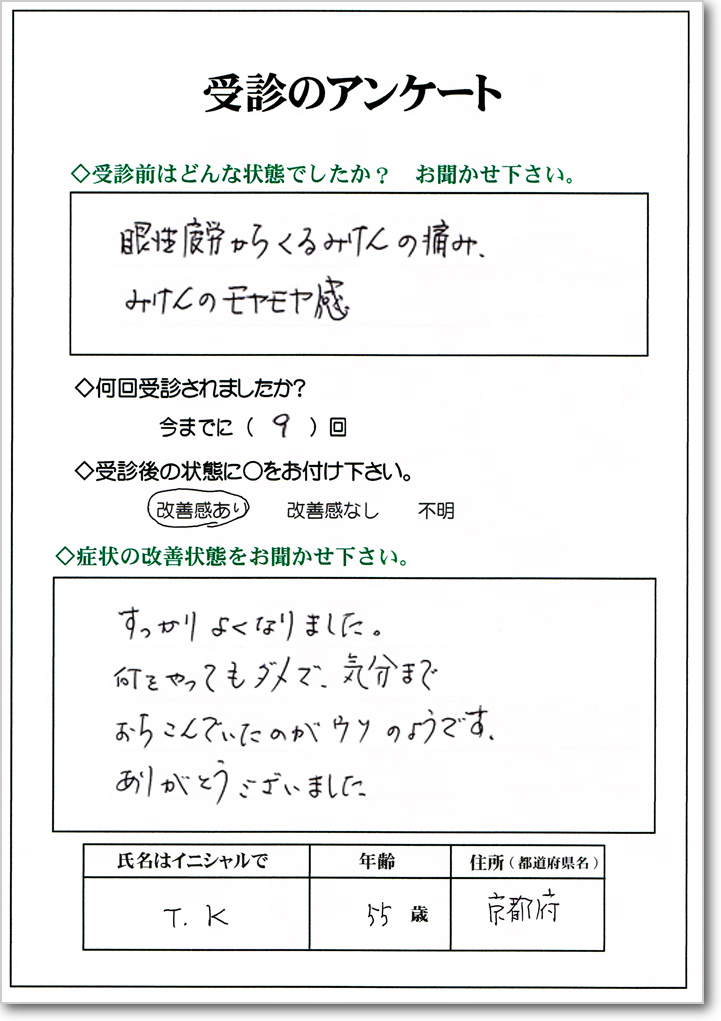 受診のアンケート
◇受診前はどんな状態でしたか? お聞かせ下さい。
眼性疲労からくるみけんの痛み、
みけんのモヤモヤ感
◇何回受診されましたか?
今までに( 9 )回
◇受診後の状態に○をお付け下さい。
改善感あり 改善感なし 不明
◇症状の改善状態をお聞かせ下さい。
すっかりよくなりました。
何をやってもダメで、気分まで
おちこんでいたのがウソのようです、
ありがとうございました
氏名はイニシャルで 年齢 住所(都道府県名)
T. K 55 歳 京都府